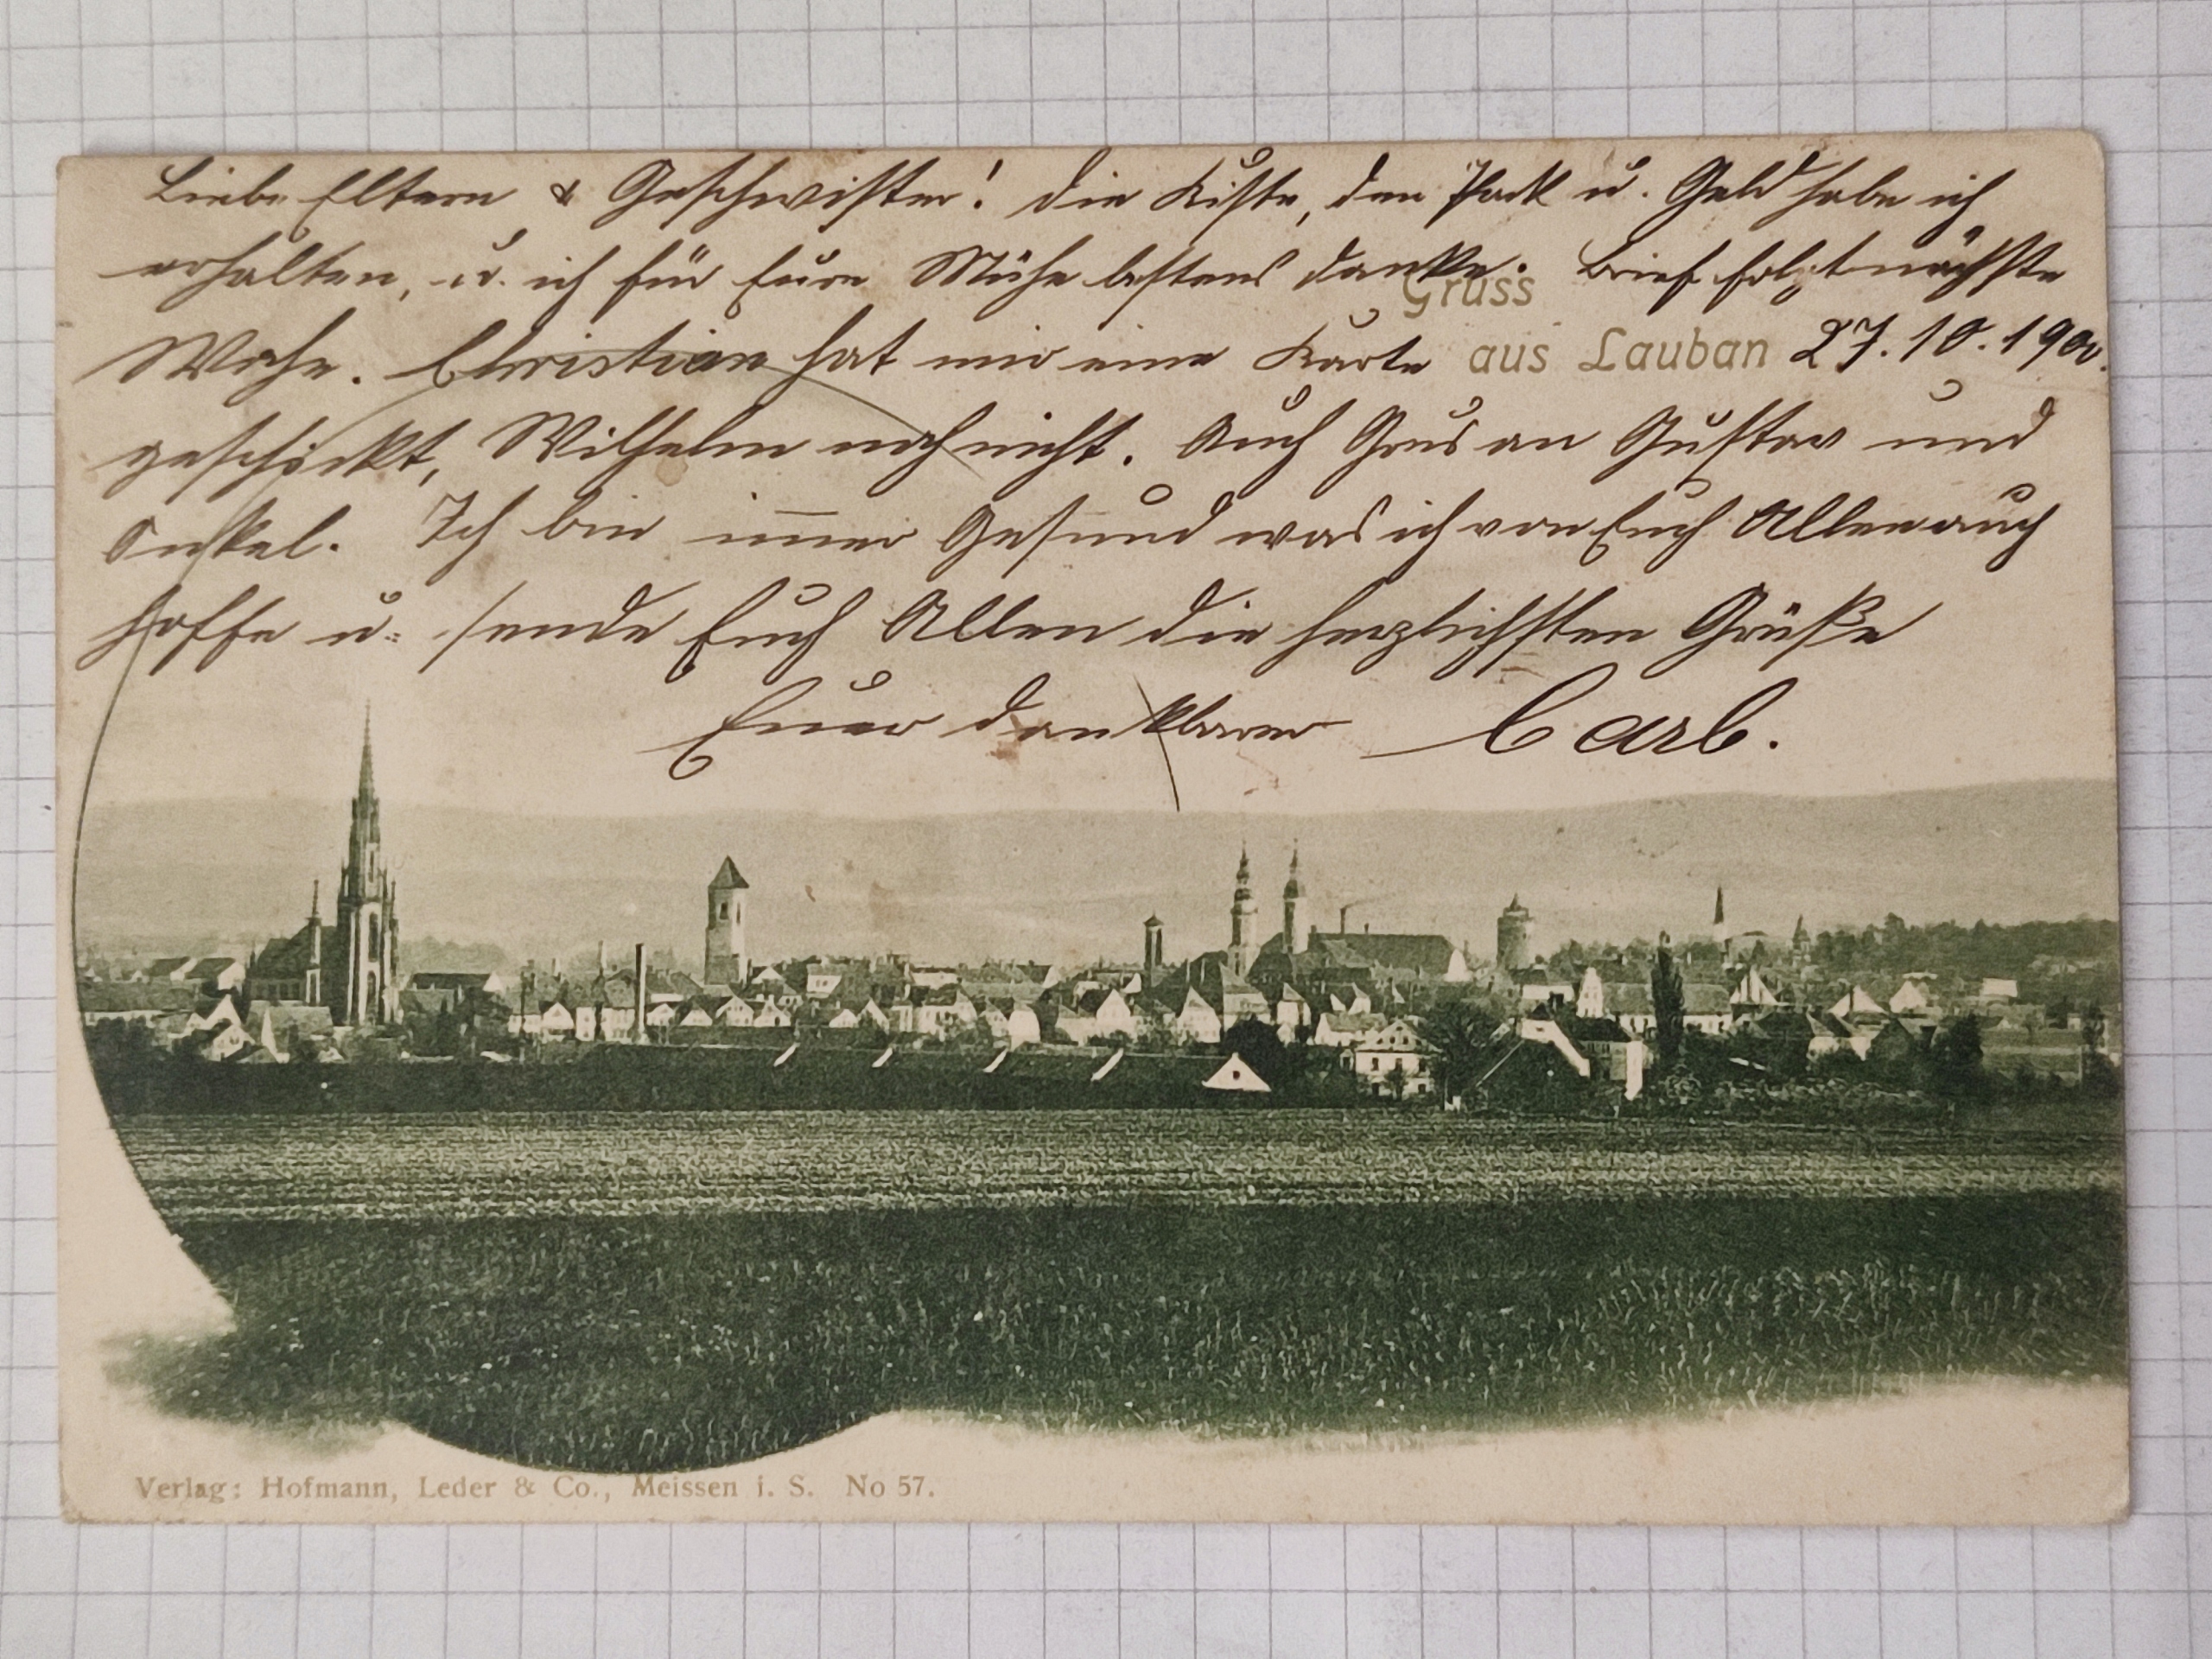 Liebe Eltern & Geschwister! die Kiste, den Pack u. Geld habe ich
erhalten, u. ich für Eure Mühe bestens danke. Brief folgt nächste
Gruss
Woche. Christian hat mir eine Karte aus Lauban 27.10.1900.
geschickt, Wilhelm noch nicht. Auch Grus an Gustav und
Onkel. Ich bin im̄er Gesund was ich von Euch Allen auch
hoffe u. sende Euch Allen die herzlichsten Grüße
Euer dankbarer Carl.
Verlag: Hofmann, Leder & Co., Meissen i. S. No 57.